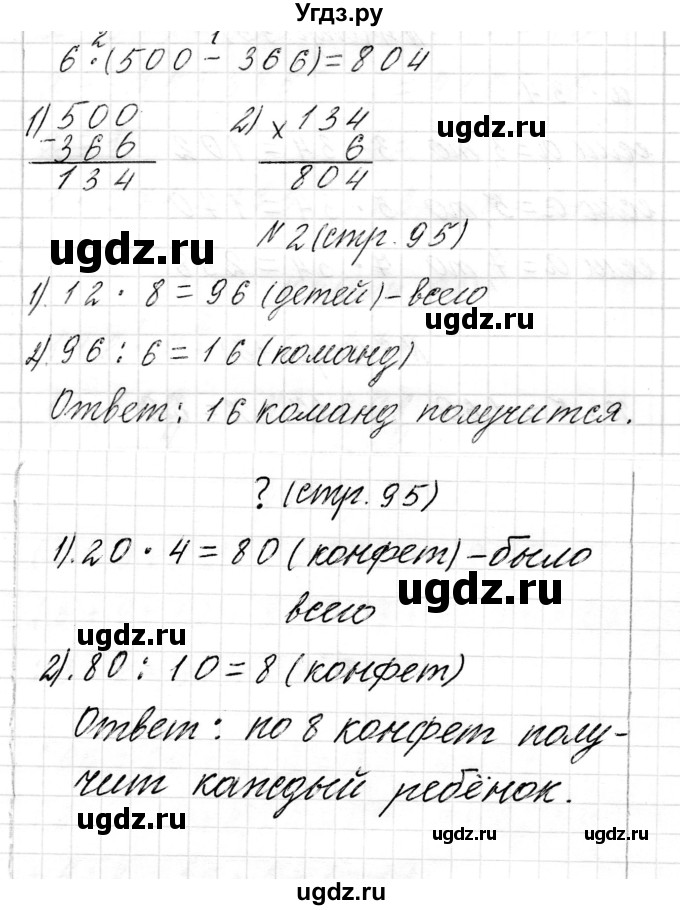 Угдз.ру
2 1
6·(500 - 366) = 804
1) 500 2) × 134
- 366 6
134 804
ugdz.ru
ugdz.ru
N 2 (стр. 95)
1). 12 · 8 = 96 (детей) - всего
ugdz.ru
2). 96 : 6 = 16 (команд)
Ответ: 16 команд получится.
? (стр. 95)
1). 20 · 4 = 80 (конфет) - было
всего
ugdz.ru
ugdz.ru
2). 80 : 10 = 8 (конфет)
Ответ: по 8 конфет полу-
чит каждый ребёнок.
ugdz.ru
ugdz.ru
ugdz.ru
ugdz.ru